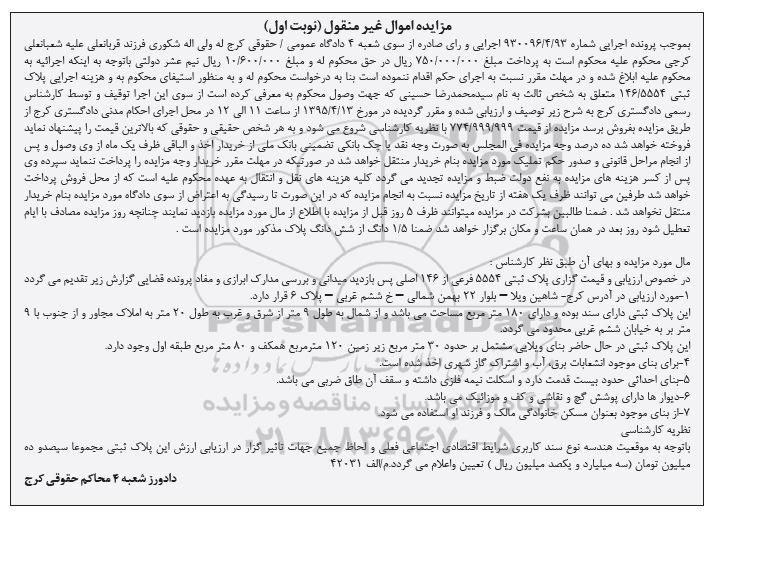 مزایده اموال غیر منقول (نوبت اول)
بموجب پرونده اجرایی شماره ۹۳۰۰۹۶/۴/۹۳ اجرایی و رای صادره از سوی شعبه ۴ دادگاه عمومی / حقوقی کرج له ولی اله شکوری فرزند قربانعلی علیه شعبانعلی
کرجی محکوم علیه محکوم است به پرداخت مبلغ ۷۵۰/۰۰۰/۰۰۰ ریال در حق محکوم له و مبلغ ۱۰/۶۰۰/۰۰۰ ریال نیم عشر دولتی باتوجه به اینکه اجرائیه به
محکوم علیه ابلاغ شده و در مهلت مقرر نسبت به اجرای حکم اقدام ننموده است بنا به درخواست محکوم له و به منظور استیفای محکوم به و هزینه اجرایی پلاک
ثبتی ۱۴۶/۵۵۵۴ متعلق به شخص ثالث به نام سیدمحمدرضا حسینی که جهت وصول محکوم به معرفی کرده است از سوی این اجرا توقیف و توسط کارشناس
رسمی دادگستری کرج به شرح زیر توصیف و ارزیابی شده و مقرر گردیده در مورخ ۱۳۹۵/۴/۱۳ از ساعت ۱۱ الی ۱۲ در محل اجرای احکام مدنی دادگستری کرج از
طریق مزایده بفروش برسد مزایده از قیمت ۷۷۴/۹۹۹/۹۹۹ با نظریه کارشناسی شروع می شود و به هر شخص حقیقی و حقوقی که بالاترین قیمت را پیشنهاد نماید
فروخته خواهد شد ده درصد وجه مزایده فی المجلس به صورت وجه نقد یا چک بانکی تضمینی بانک ملی از خریدار اخذ و الباقی ظرف یک ماه از وی وصول و پس
از انجام مراحل قانونی و صدور حکم تملیک مورد مزایده بنام خریدار منتقل خواهد شد در صورتیکه در مهلت مقرر خریدار وجه مزایده را پرداخت ننماید سپرده وی
پس از کسر هزینه های مزایده به نفع دولت ضبط و مزایده تجدید می گردد کلیه هزینه های نقل و انتقال به عهده محکوم علیه است که از محل فروش پرداخت
خواهد شد طرفین می توانند ظرف یک هفته از تاریخ مزایده نسبت به انجام مزایده که در این صورت تا رسیدگی به اعتراض از سوی دادگاه مورد مزایده بنام خریدار
منتقل نخواهد شد . ضمنا طالبین بشرکت در مزایده میتوانند ظرف ۵ روز قبل از مزایده با اطلاع از مال مورد مزایده بازدید نمایند چنانچه روز مزایده مصادف با ایام
تعطیل شود روز بعد در همان ساعت و مکان برگزار خواهد شد ضمنا ۱/۵ دانگ از شش دانگ پلاک مذکور مورد مزایده است .
مال مورد مزایده و بهای آن طبق نظر کارشناس :
در خصوص ارزیابی و قیمت گزاری پلاک ثبتی ۵۵۵۴ فرعی از ۱۴۶ اصلی پس بازدید میدانی و بررسی مدارک ابرازی و مفاد پرونده قضایی گزارش زیر تقدیم می گردد
۱-مورد ارزیابی در آدرس کرج- شاهین ویلا – بلوار ۲۲ بهمن شمالی – خ ششم غربی – پلاک ۶ قرار دارد.
این پلاک ثبتی دارای سند بوده و دارای ۱۸۰ متر مربع مساحت می باشد و از شمال به طول ۹ متر از شرق و غرب به طول ۲۰ متر به املاک مجاور و از جنوب با ۹
متر بر به خیابان ششم غربی محدود می گردد.
این پلاک ثبتی در حال حاضر بنای ویلایی مشتمل بر حدود ۳۰ متر مربع زیر زمین ۱۲۰ مترمربع همکف و ۸۰ متر مربع طبقه اول وجود دارد.
۴-برای بنای موجود انشعابات برق، آب و اشتراک گاز شهری اخذ شده است.
۵-بنای احداثی حدود بیست قدمت دارد و اسکلت نیمه فلزی داشته و سقف آن طاق ضربی می باشد.
۶-دیوار ها دارای پوشش گچ و نقاشی و کف و موزائیک می باشد.
۷-از بنای موجود بعنوان مسکن خانوادگی مالک و فرزند او استفاده می شود.
نظریه کارشناسی
باتوجه به موقعیت هندسه نوع سند کاربری شرایط اقتصادی اجتماعی فعلی و لحاظ جمیع جهات تاثیر گزار در ارزیابی ارزش این پلاک ثبتی مجموعا سیصدو ده
میلیون تومان (سه میلیارد و یکصد میلیون ریال ) تعیین واعلام می گردد.م/الف ۴۲۰۳۱
دادورز شعبه ۴ محاکم حقوقی کرج
ParsNamadData
پایگاه اطلاع رسانی مناقصه و مزایده
۰۲۱-۸۸۳۴۹۶۷۰-۵